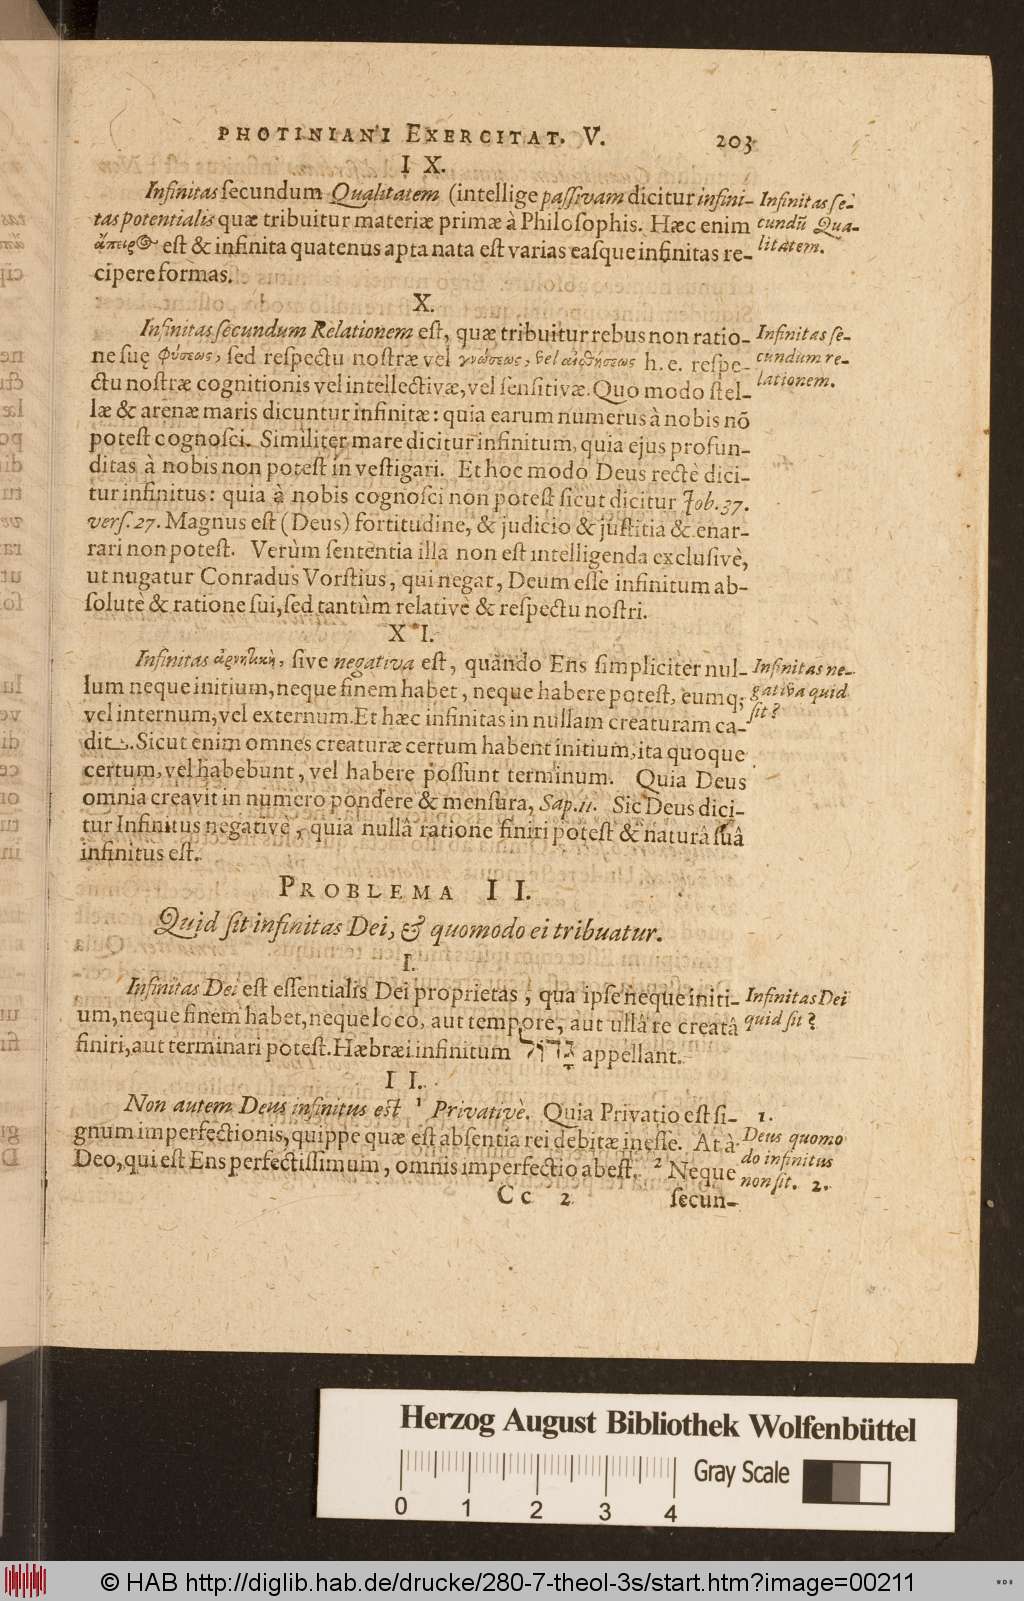 PHOTINIANI EXERCITAT. V. 203
IX.
Infinitas ſecundum Qualitatem (intellige paſſivam dicitur infini-
tas potentialis quæ tribuitur materiæ primæ à Philoſophis. Hæc enim
ἄπειρος eſt & infinita quatenus apta nata eſt varias eaſque infinitas re-
cipere formas.
Infinitas ſe-
cundũ Qua-
litatem.
X.
Infinitas ſecundum Relationem eſt, quæ tribuitur rebus non ratio-
ne ſuę φύσεως, ſed reſpectu noſtræ vel γνώσεως, vel αἰσθήσεως h. e. reſpe-
ctu noſtræ cognitionis vel intellectivæ, vel ſenſitivæ. Quo modo ſtel-
læ & arenæ maris dicuntur infinitæ: quia earum numerus à nobis nõ
poteſt cognoſci. Similiter mare dicitur infinitum, quia ejus profun-
ditas à nobis non poteſt in veſtigari. Et hoc modo Deus rectè dici-
tur infinitus: quia à nobis cognoſci non poteſt ſicut dicitur Job. 37.
verſ. 27. Magnus eſt (Deus) fortitudine, & judicio & juſtitia & enar-
rari non poteſt. Verùm ſententia illa non eſt intelligenda excluſivè,
ut nugatur Conradus Vorſtius, qui negat, Deum eſſe infinitum ab-
ſolutè & ratione ſui, ſed tantùm relativè & reſpectu noſtri.
Infinitas ſe-
cundum re-
lationem.
XI.
Infinitas ἀρνητικὴ, ſive negativa eſt, quando Ens ſimpliciter nul-
lum neque initium, neque finem habet, neque habere poteſt, eumq;
vel internum, vel externum. Et hæc infinitas in nullam creaturam ca-
dit. Sicut enim omnes creaturæ certum habent initium, ita quoque
certum, vel habebunt, vel habere poſſunt terminum. Quia Deus
omnia creavit in numero pondere & menſura, Sap. 11. Sic Deus dici-
tur Infinitus negativè, quia nullâ ratione finiri poteſt & naturâ ſuâ
infinitus eſt.
Infinitas ne-
gativa quid
ſit?
PROBLEMA II.
Quid ſit infinitas Dei, & quomodo ei tribuatur.
I.
Infinitas Dei eſt eſſentialis Dei proprietas, qua ipſe neque initi-
um, neque finem habet, neque loco, aut tempore, aut ullâ re creatâ
finiri, aut terminari poteſt. Hæbræi infinitum גָּדוֹל appellant.
Infinitas Dei
quid ſit?
II.
Non autem Deus infinitus eſt 1 Privativè. Quia Privatio eſt ſi-
gnum imperfectionis, quippe quæ eſt abſentia rei debitæ ineſſe. At à
Deo, qui eſt Ens perfectiſſimum, omnis imperfectio abeſt. 2 Neque
1.
Deus quomo
do infinitus
non ſit. 2.
Cc 2 ſecun-
Herzog August Bibliothek Wolfenbüttel
Gray Scale
0 1 2 3 4
© HAB http://diglib.hab.de/drucke/280-7-theol-3s/start.htm?image=00211